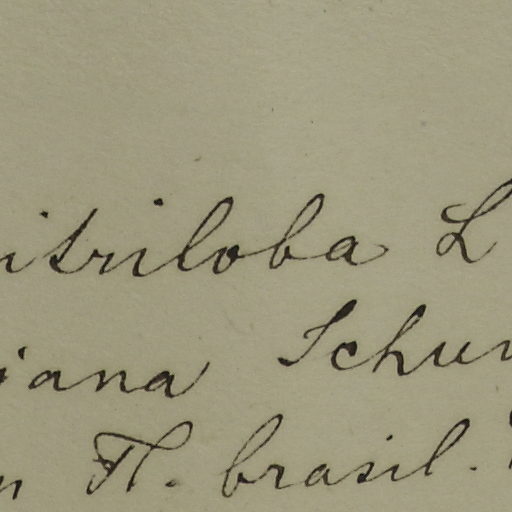 itriloba L
iana Schum
n Fl. brasil.